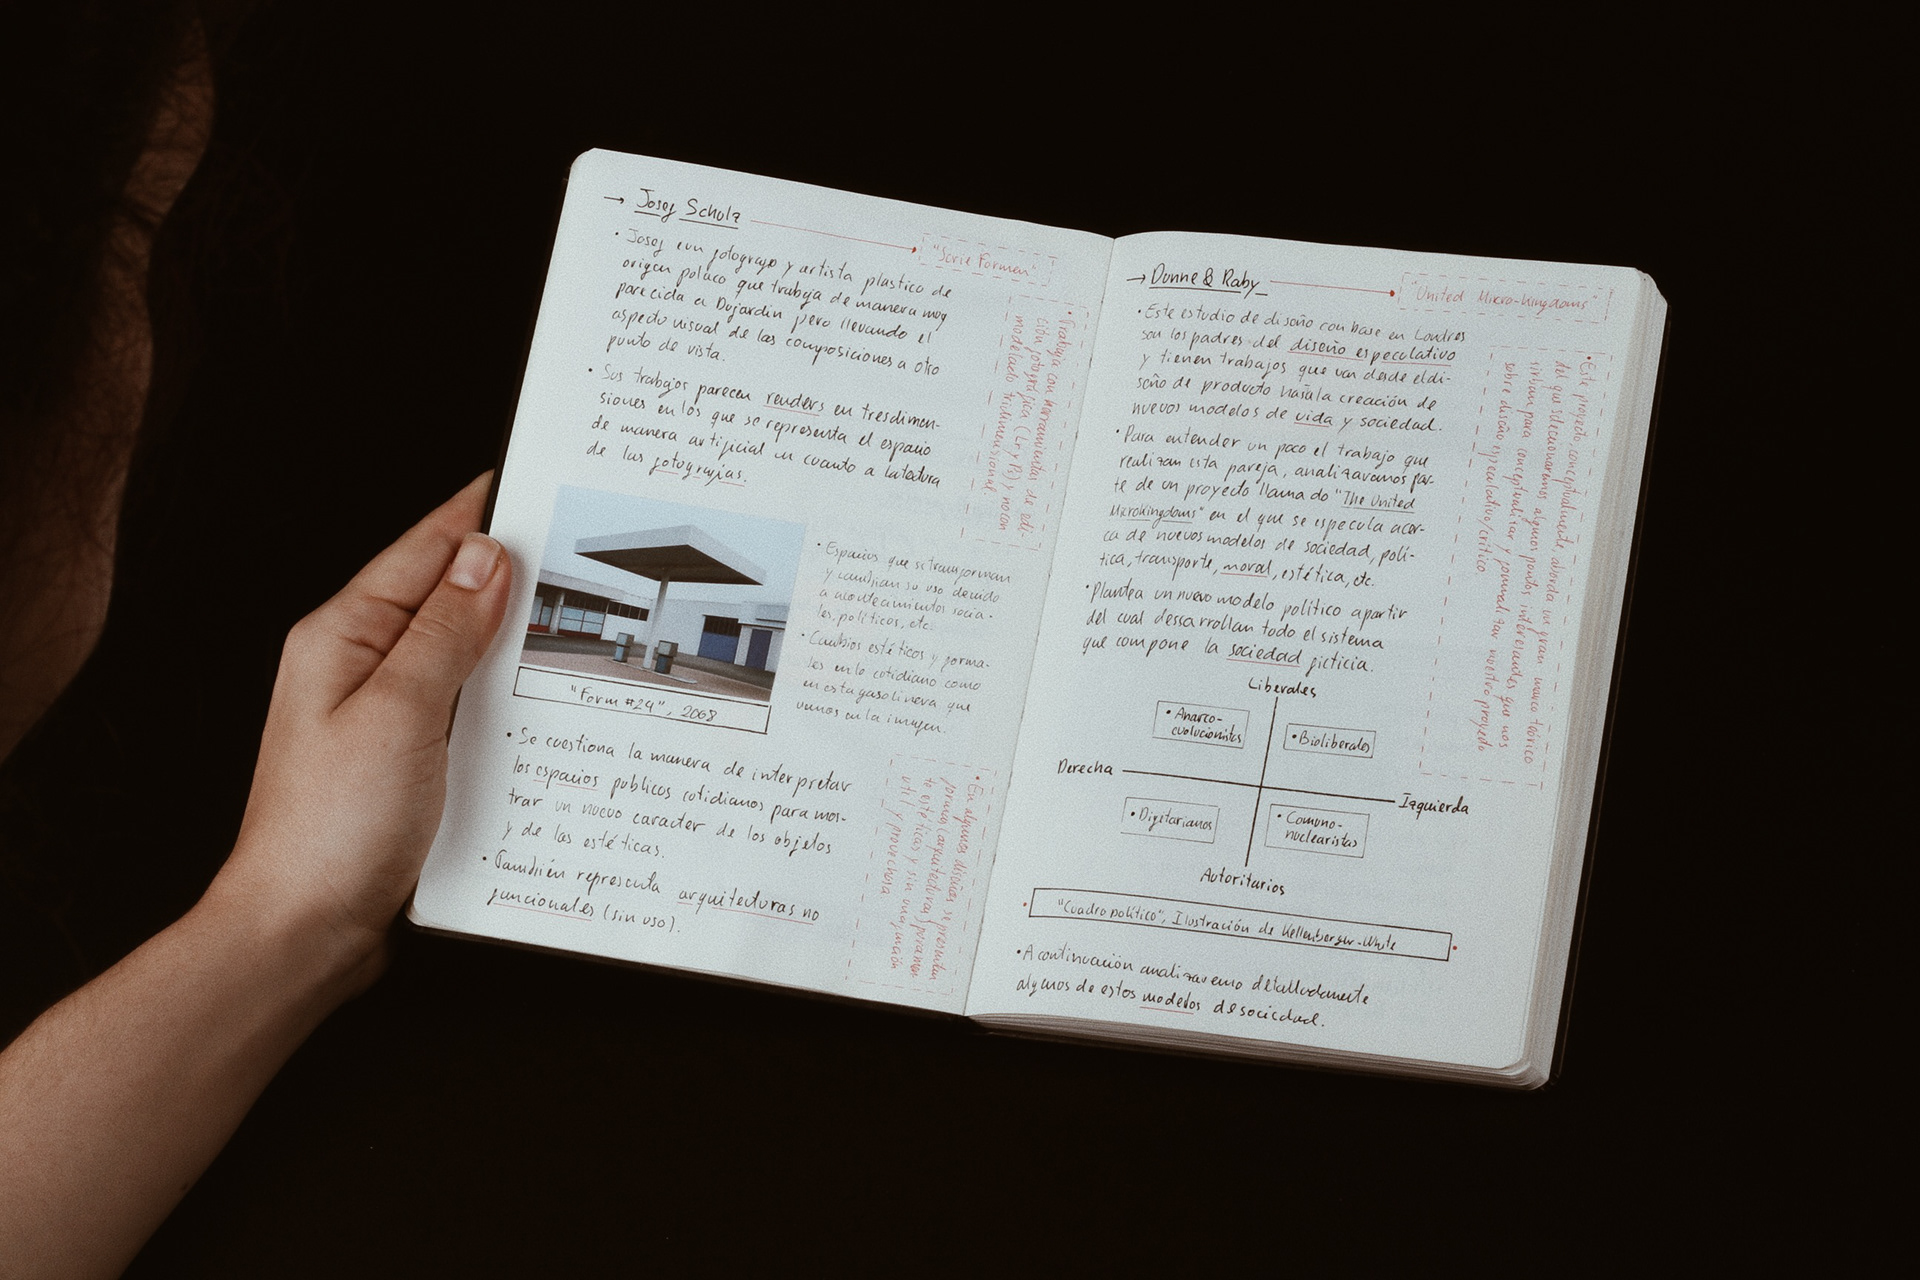 → Josef Schulz
"Serie Formen"
• Josef es un fotografo y artista plastico de
origen polaco que trabaja de manera muy
parecida a Dujardin pero llevando el
aspecto visual de las composiciones a otro
punto de vista.
• Sus trabajos parecen renders en tresdimen-
siones en los que se representa el espacio
de manera artificial en cuanto a la textura
de las fotografias.
• Trabaja con herramientas de edi-
ción fotográfica (Lr y Ps) y no con
modelado tridimensional
• Espacios que se transforman
y cambian su uso devido
a acontecimientos socia-
les, políticos, etc.
• Cambios estéticos y forma-
les en lo cotidiano como
en esta gasolinera que
vemos en la imagen.
"Form #24", 2068
• Se cuestiona la manera de interpretar
los espacios publicos cotidianos para mos-
trar un nuevo caracter de los objetos
y de las estéticas.
• También representa arquitecturas no
funcionales (sin uso).
• En algunos diseños se presentan
formas (arquitecturas) puramen
te estéticas y sin una función
util y provechosa
→ Dunne & Raby
"United Micro-Kingdoms"
• Este estudio de diseño con base en Londres
son los padres del diseño especulativo
y tienen trabajos que van desde el di-
seño de producto hasta la creación de
nuevos modelos de vida y sociedad.
• Para entender un poco el trabajo que
realizan esta pareja, analizaramos par-
te de un proyecto llamado "The United
Microkingdoms" en el que se especula acer-
ca de nuevos modelos de sociedad, polí-
tica, transporte, moral, estética, etc.
• Plantea un nuevo modelo político apartir
del cual dessarrollan todo el sistema
que compone la sociedad ficticia.
• Este proyecto, conceptualmente, aborda un gran marco teórico
del que seleccionaremos algunos puntos interesantes que nos
sirban para conceptualizar y formalizar nuestro proyecto
sobre diseño especulativo/crítico
Liberales
• Anarco-
evolucionistas
• Bioliberales
Derecha
Izquierda
• Digitarianos
• Comuno-
nuclearistas
Autoritarios
"Cuadro político", Ilustración de Kellenberger-White
• A continuación analizaremo detalladamente
algunos de estos modelos de sociedad.